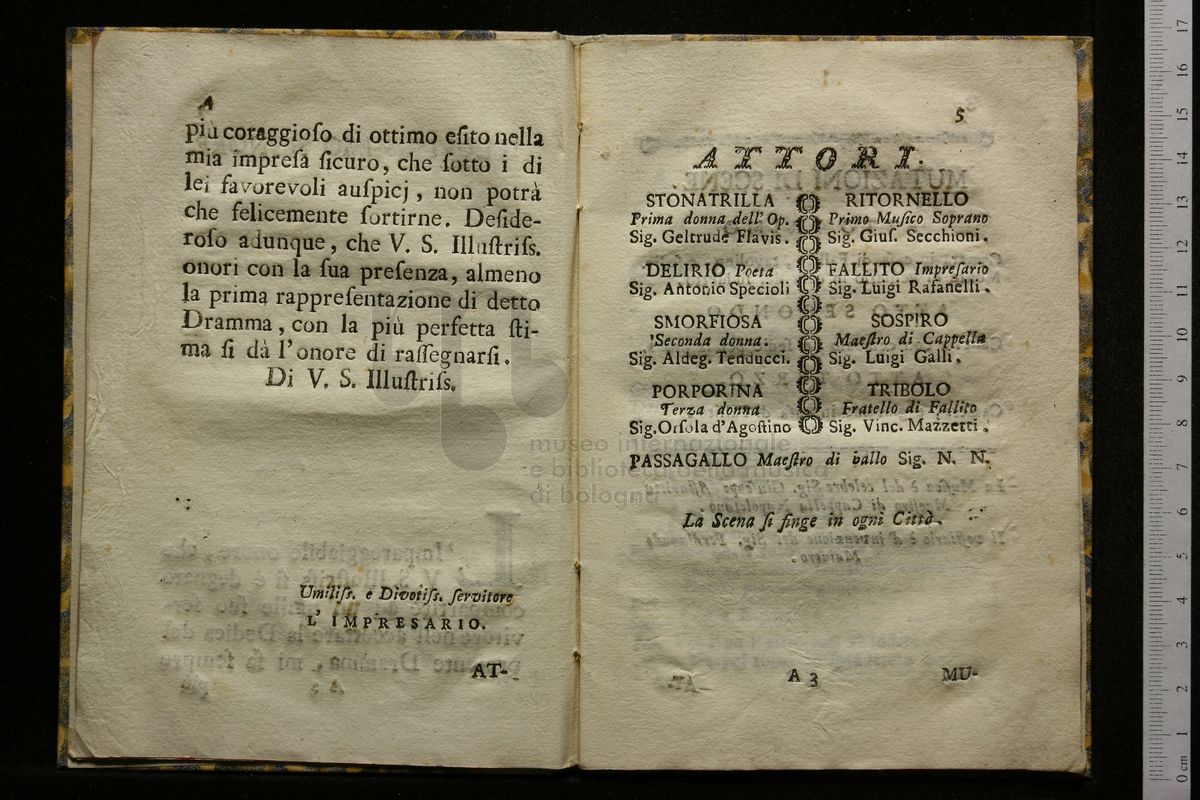 4
più coraggioſo di ottimo eſito nella
mia impreſa ſicuro, che ſotto i di
lei favorevoli auſpicj, non potrà
che felicemente ſortirne. Deſide-
roſo adunque, che V. S. Illuſtriſs.
onori con la ſua preſenza, almeno
la prima rappreſentazione di detto
Dramma, con la più perfetta ſti-
ma ſi dà l'onore di raſſegnarſi.
Di V. S. Illuſtriſs.
Umiliſs. e Divotiſs. ſervitore
L'IMPRESARIO.
AT-
5
ATTORI.
STONATRILLA
Prima donna dell'Op.
Sig. Geltrude Flavis.
DELIRIO Poeta
Sig. Antonio Specioli
SMORFIOSA
Seconda donna.
Sig. Aldeg. Tenducci.
PORPORINA
Terza donna
Sig. Orſola d'Agoſtino
RITORNELLO
Primo Muſico Soprano
Sig. Giuſ. Secchioni.
FALLITO Impreſario
Sig. Luigi Rafanelli.
SOSPIRO
Maeſtro di Cappella
Sig. Luigi Galli.
TRIBOLO
Fratello di Fallito
Sig. Vinc. Mazzetti.
PASSAGALLO Maeſtro di ballo Sig. N. N.
La Scena ſi finge in ogni Città.
A 3
MU-
museo internazionale
e biblioteca della musica
di bologna
0 cm 1 2 3 4 5 6 7 8 9 10 11 12 13 14 15 16 17